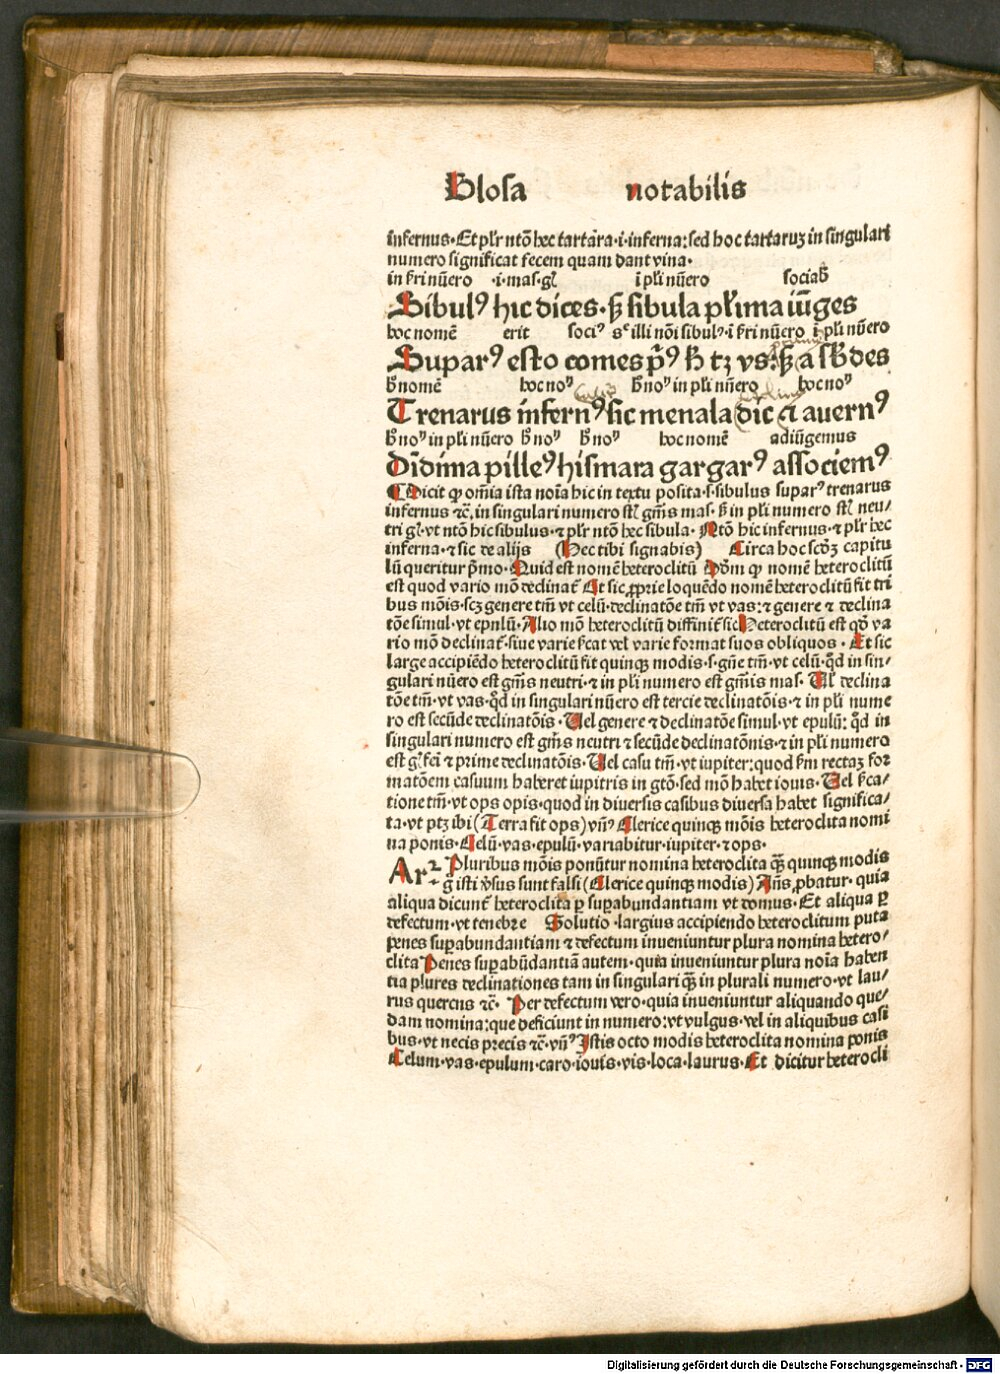 Glosa notabilis
infernus·Et plr̃ ntõ hec tartara·i·inferna:sed hoc tartaruʒ in singulari
numero significat fecem quam dant vina·
in ſcri nũero ·i·mas·gl̃ i pl̃i nũero sociab̃
Sibulꝰ hic dices·ſʒ sibula pl̃ima iũges
hoc nomẽ erit sociꝰ sᶜ illi nõi sibulꝰ·i ſcri nũero i pl̃i nũero
Suparꝰ esto comes pꝰ̃ h̃ tʒ vs:ſʒ a sb̃des
h̃ nomẽ hoc noᵐ h̃ noᵐ in pl̃i nũero hoc noᵐ
Trenarus infernꝰ sic menala dic̃ ⁊ auernꝰ
h̃ noᵐ in pl̃i nũero h̃ noᵐ h̃ noᵐ hoc nomẽ adiũgemus
Didima pilleꝰ hismara gargarꝰ associemꝰ
Dicit ꝙ om̃ia ista noĩa hic in textu posita·s·sibulus suparꝰ trenarus
infernus ⁊c̃. in singulari numero st̃ gñis mas· ſʒ in pl̃i numero st̃ neu/
tri gl̃·vt ntõ hic sibulus·⁊ plr̃ ntõ hec sibula· Ntõ hic infernus·⁊ plr̃ hec
inferna·⁊ sic de alijs (Hec tibi signabis) Circa hoc scd̃ʒ capitu
lũ queritur p̃mo·Quid est nomẽ heteroclitũ Dõm ꝙ nomẽ heteroclitũ
est quod vario mõ declinat̃ Et sic ꝓprie loquẽdo nomẽ heteroclitũ fit tri
bus mõis·scʒ genere tm̃ vt celũ·declinatõe tm̃ vt vas:⁊ genere ⁊ declina
tõe simul·vt epulũ·Alio mõ heteroclitũ diffinit̃ sic Heteroclitũ est qd̃ va
rio mõ declinat̃·siue varie ſcat vel varie format suos obliquos· Et sic
large accipiẽdo heteroclitũ fit quinqꝫ modis·s·gñe tm̃·vt celũ·qd̃ in sin/
gulari nũero est gñis neutri·⁊ in pl̃i numero est gñis mas· Vl̃ declina
tõe tm̃·vt vas·qd̃ in singulari nũero est tercie declinatõis·⁊ in pl̃i nume
ro est secũde declinatõis·Uel genere ⁊ declinatõe simul·vt epulũ: qd̃ in
singulari numero est gñis neutri ⁊ secũde declinatõnis·⁊ in pl̃i numero
est gl̃ fẽi ⁊ prime declinatõis·Uel casu tm̃·vt iupiter:quod ſm rectaʒ for
matõem casuum haberet iupitris in gtõ·sed mõ habet iouis·Uel ſca/
tione tm̃·vt ops opis·quod in diuersis casibus diuersa habet significa/
ta·vt ptʒ ibi (Terra fit ops) vñꝰ Clerice quinqꝫ mõis heteroclita nomi
na ponis·Celũ·vas·epulũ·variabitur·iupiter·⁊ ops·
Arꝛ Pluribus mõis ponũtur nomina heteroclita qꝫ̃ quinqꝫ modis
g̃ isti v̾sus sunt falsi (Clerice quinqꝫ modis) Añs ꝓbatur· quia
aliqua dicunt̃ heteroclita ꝑ suꝑabundantiam vt domus·Et aliqua ꝑ
defectum·vt tenebre Solutio·largius accipiendo heteroclitum puta
penes suꝑabundantiam ⁊ defectum inueniuntur plura nomina hetero/
clita Penes suꝑabũdantiã autem·quia inueniuntur plura noĩa haben
tia plures declinationes tam in singulari qꝫ̃ in plurali numero·vt lau/
rus quercus ⁊c̃· Per defectum vero·quia inueniuntur aliquando que/
dam nomina:que deficiunt in numero:vt vulgus·vel in aliquibus casi
bus·vt necis precis ⁊c̃·vñꝰ Istis octo modis heteroclita nomina ponis
Celum·vas·epulum·caro·iouis·vis·loca·laurus·Et dicitur heterocli
Digitalisierung gefördert durch die Deutsche Forschungsgemeinschaft - DFG